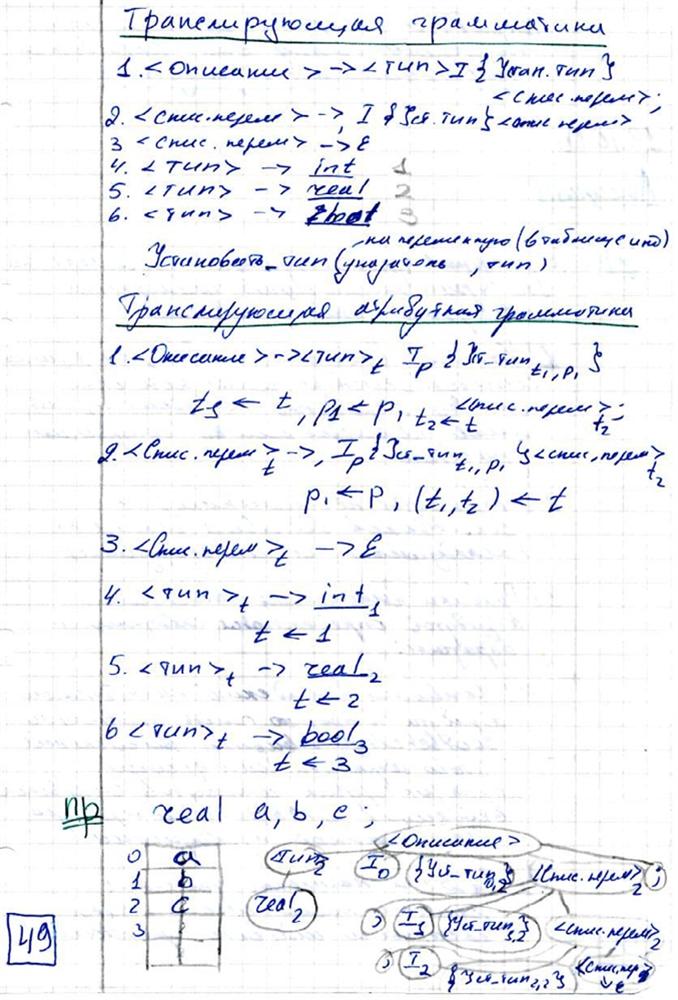 Транслирующая грамматика
1. <Описание> -> <тип> I {Устан. тип}
<Спис.перем>;
2. <Спис.перем> -> , I {Уст.тип} <спис перем>
3 <Спис. перем> -> ε
4. <тип> -> int 1
5. <тип> -> real 2
6. <тип> -> bool 3
на переменную (в таблице инд)
Установить_тип (указатель, тип)
Транслирующая атрибутная грамматика
1. <Описание> -> <тип>t Ip {Уст-тип t1, p1}
t1 ← t, p1 ← p, t2 ← t <спис.перем>t2;
2. <Спис. перем>t -> , Ip {Уст-тип t1, p1} <спис, перем>t2
p1 ← p, (t1, t2) ← t
3. <Спис. перем>t -> ε
4. <тип>t -> int1
t ← 1
5. <тип>t -> real2
t ← 2
6 <тип>t -> bool3
t ← 3
пр real a, b, c;
<Описание>
0 a <тип>2 I0 {Уст-тип 0,2} <Спис.перем>2 ;
1 b real2
2 c , I1 {Уст-тип 1,2} <Спис.перем>2
3
, I2 {Уст-тип 2,2} <Спис.пер>
ε
49